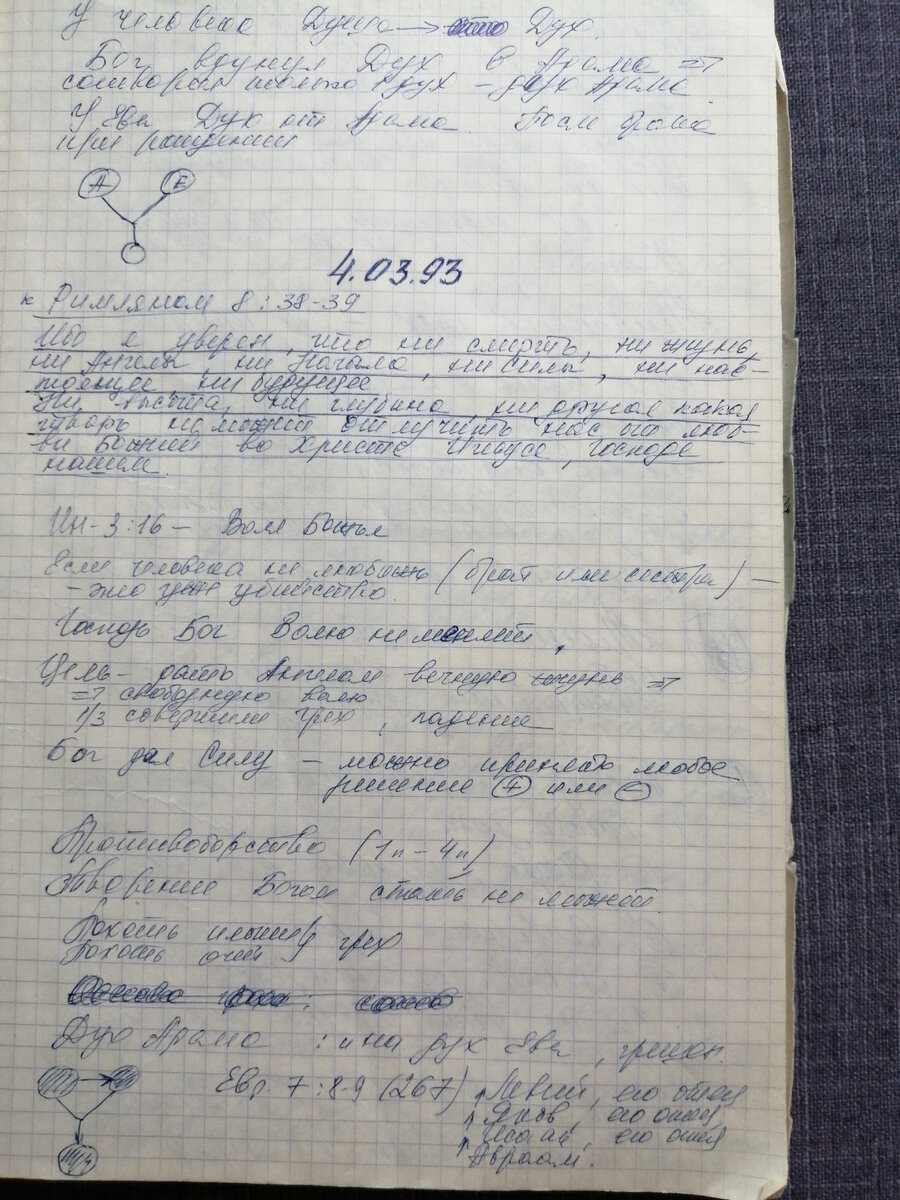 У человека Душа → Дух.
Бог вдунул Дух в Адама ⇒
сотворил только 1 дух – дух Адама
У Евы Дух от Адама. После
при рождении
А Е
4.03.93
к Римлянам 8:38-39
Ибо я уверен, что ни смерть, ни жизнь,
ни Ангелы, ни Начала, ни Силы, ни нас-
тоящее, ни будущее
Ни высота, ни глубина, ни другая какая
тварь не может отлучить нас от люб-
ви Божией во Христе Иисусе, Господе
нашем.
Ин-3:16 – Воля Божья
Если человека не любить (брат или сестра) –
– это уже убийство.
Господь Бог Волю не меняет.
Цель – дать Ангелам вечную жизнь ⇒
⇒ свободную волю
1/3 совершили грех, падение
Бог дал Силу – можно принять любое
решение (+) или (–)
Противоборство (1п – 4п)
Творение Богом стать не может.
Похоть плоти } грех
Похоть очей
Дух Адама : и на дух Евы,
Евр. 7:8-9 (267) ↑ Левий, его отец
↑ Яков, его отец
↑ Исаак, его отец
Авраам.